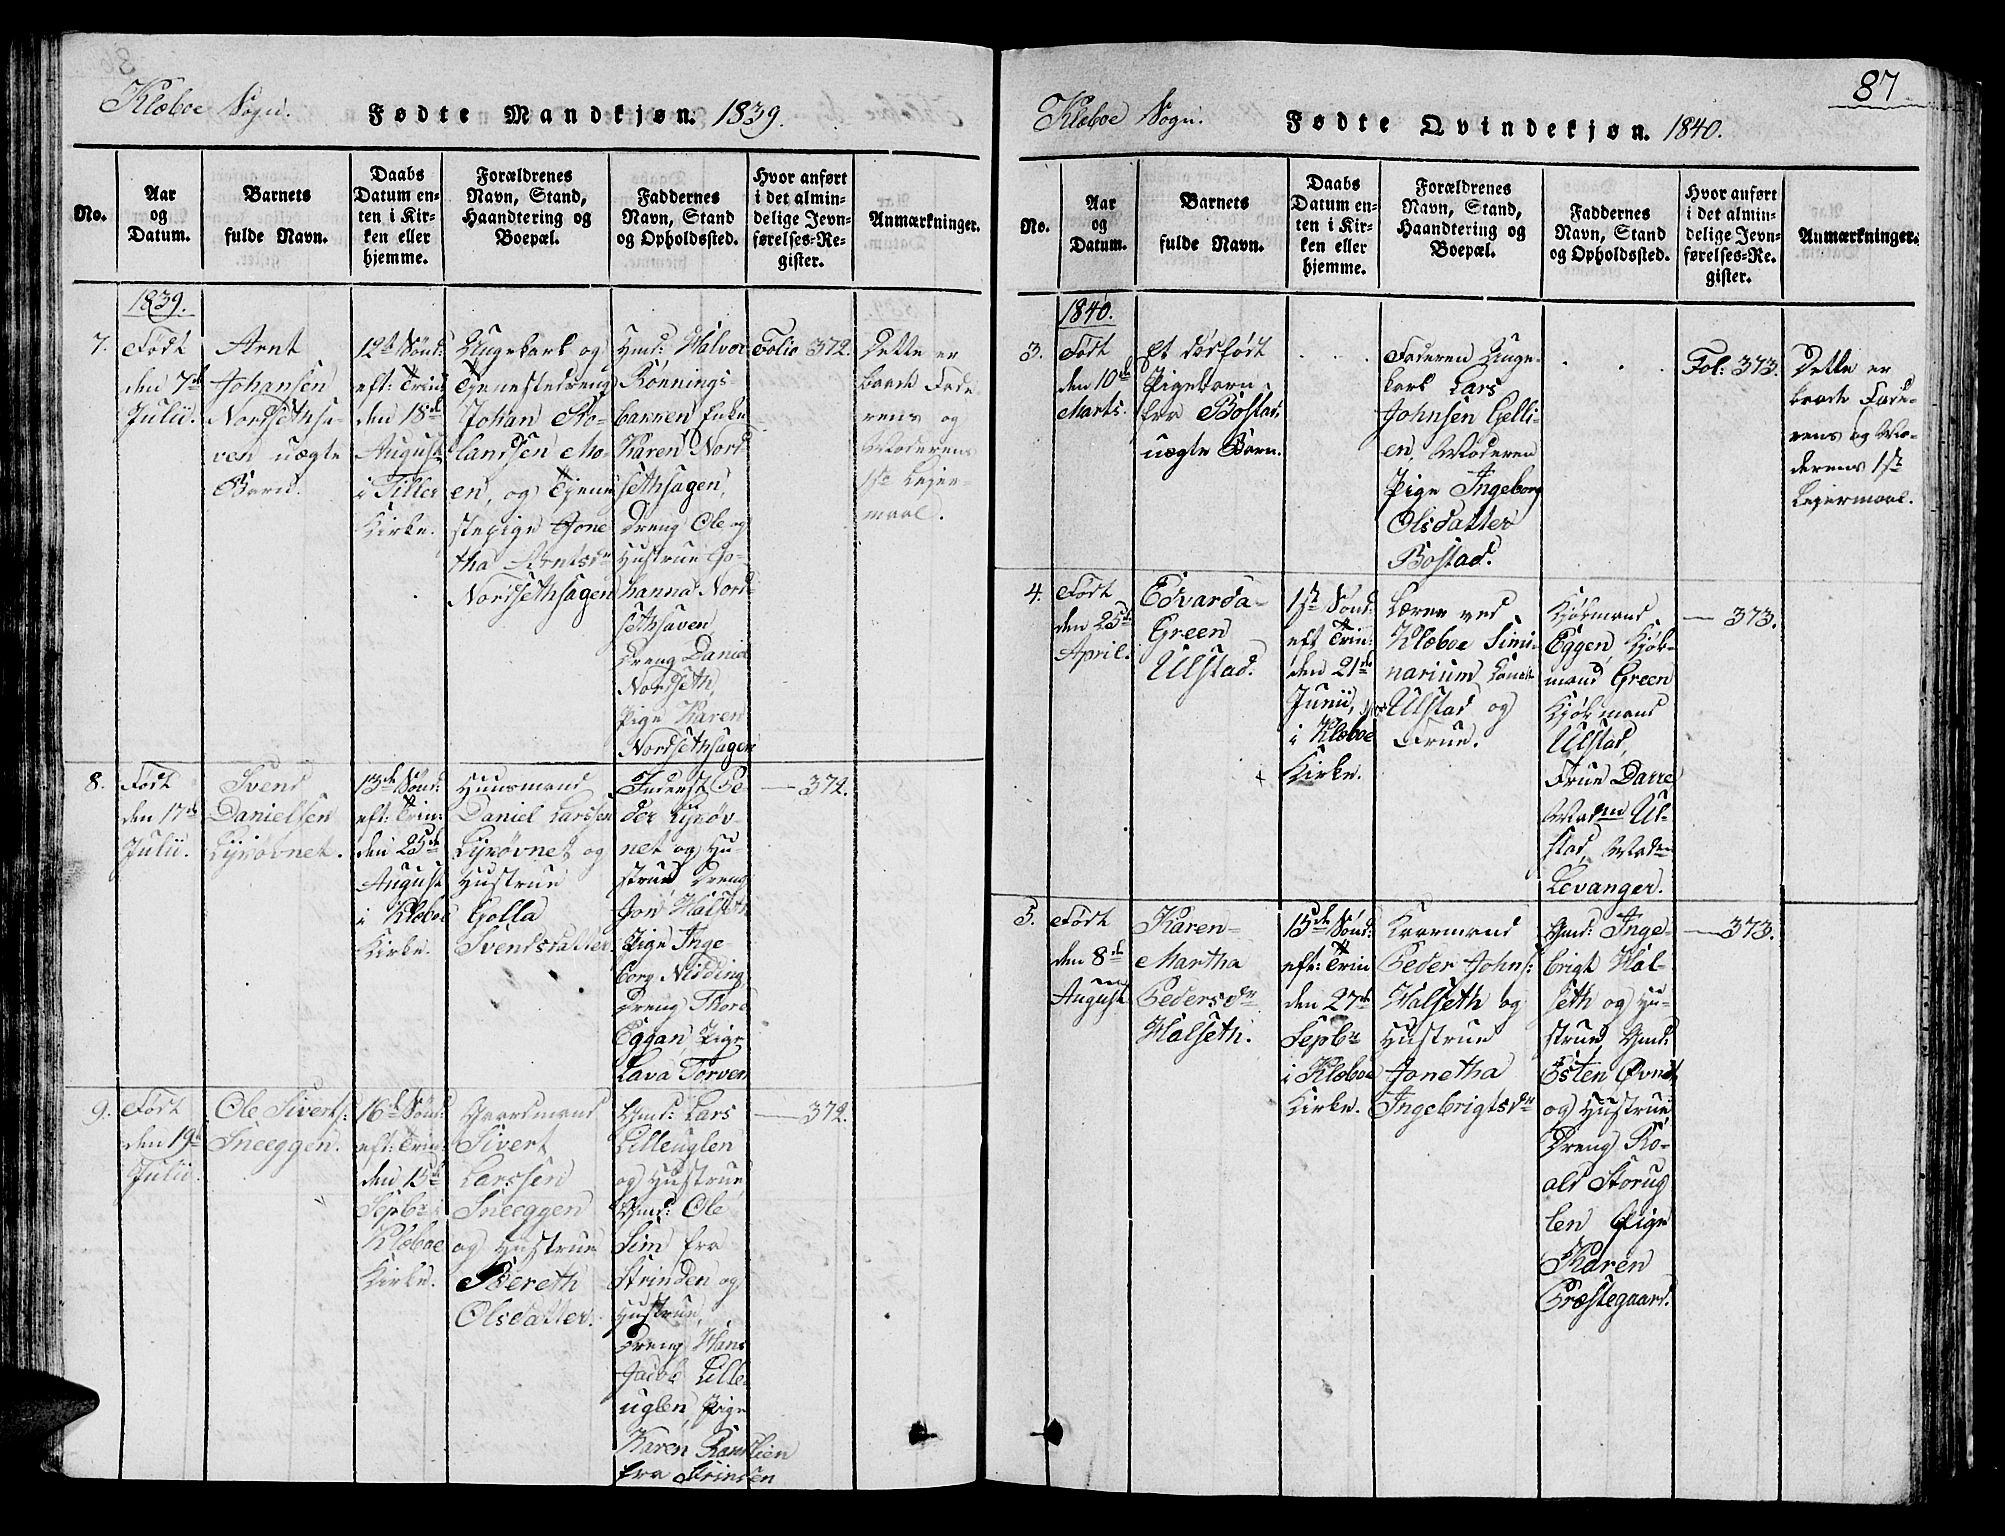 Klæboe Sogn. Fødte Mandkjøn. 1839.
No.
Aar
og
Datum.
Barnets
fulde Navn.
Daabs
Datum en-
ten i Kir-
ken eller
hjemme.
Forældrenes
Navn, Stand,
Haandtering og
Boepæl.
Faddernes
Navn, Stand
og Opholdssted.
Hvor anført
i det almin-
delige Jevn-
førelses-Re-
gister.
Anmærkninger.
1839.
7.
Født
den 7de
Julii.
Arnt
Johansen
Nordsethsa-
ven uægte
Barn.
12te Sønd:
eft: Trin:
den 18de
August
i Tiller
Kirke.
Ungekarl og
Tjenestedreng
Johan Ro-
landsen Mo-
en, og Tjene
stepige Jone
tha Arntsdr
Nordsethsagen
Gmd: Halvor
Rønnings-
bakken Enke
Karen Nord
sethsagen,
Dreng Ole og
Hustrue Jo-
hanna Nord
sethsaven,
Dreng Daniel
Nordseth,
Pige Karen
Nordsethsagen
Folio 372.
Dette er
baade Fade
rens og
Moderens
1ste Leier-
maal.
8.
Født
den 17de
Julii.
Svend
Danielsen
Lijsøvnet.
13de Sønd:
eft: Trin:
den 25de
August
i Klæboe
Kirke.
Huusmand
Daniel Larssen
Lijsøvnet og
Hustrue
Golla
Svendsdatter.
Inderst Pe
der Lijsøv
net og Hu-
strue Dreng
Jon Halseth
Pige Inge-
borg Nidding,
Dreng Thore
Eggan, Pige
Lava Torven
— 372.
9.
Født
den 19de
Julii.
Ole Siverts:
Sneeggen.
16de Sønd:
eft: Trin:
den 15de
Sepbr i
Klæboe
Kirke.
Gaardmand
Sivert
Larssen
Sneeggen
og Hustrue
Bereth
Olsdatter.
Gmd: Lars
Lilleuglen
og Hustrue,
Gmd: Ole
Sim fra
Strinden og
Hustrue,
Dreng Hans
Jacob Lille-
uglen, Pige
Karen
fra Strinden
— 372.
87
Klæboe Sogn. Fødte Qvindekjøn. 1840.
No.
Aar
og
Datum.
Barnets
fulde Navn.
Daabs
Datum en-
ten i Kir-
ken eller
hjemme.
Forældrenes
Navn, Stand,
Haandtering og
Boepæl.
Faddernes
Navn, Stand
og Opholdssted.
Hvor anført
i det almin-
delige Jevn-
førelses-Re-
gister.
Anmærkninger.
1840.
3.
Født
den 10de
Marts.
Et dødfødt
Pigebarn
Bostad,
uægte Barn.
Faderen Unge-
karl Lars
Johnsen Gelli-
en, Moderen
Pige Ingeborg
Olsdatter
Bostad.
Fol: 373.
Dette er
baade Fade-
rens og Mo-
derens 1ste
Leiermaal.
4.
Født
den 25de
April.
Edvarda
Green
Ulstad.
1ste Sønd:
eft: Trin:
den 21de
Junii,
i Klæboe
Kirke.
Lærer ved
Klæboe Simi-
narium
Ulstad og
Frue.
Kjøbmand
Eggen, Kjøb-
mand Green
Kjøbmand
Ulstad,
Frue Darre
Madm Ul-
stad, Madm
Levanger.
— 373.
5.
Født
den 8de
August
Karen
Martha
Pedersdr
Halseth.
15de Sønd:
eft: Trin
den 27de
Sepbr
i Klæboe
Kirke.
Peder Johns:
Halseth og
Hustrue
Jonetha
Ingebrigtsdr
Gmd: Inge-
brigt Hal-
seth og Hu-
strue, Gmd:
Esten Øvnet,
og Hustrue,
Dreng Ro-
ald Storug
len Pige
Karen
Præstegaard.
— 373.